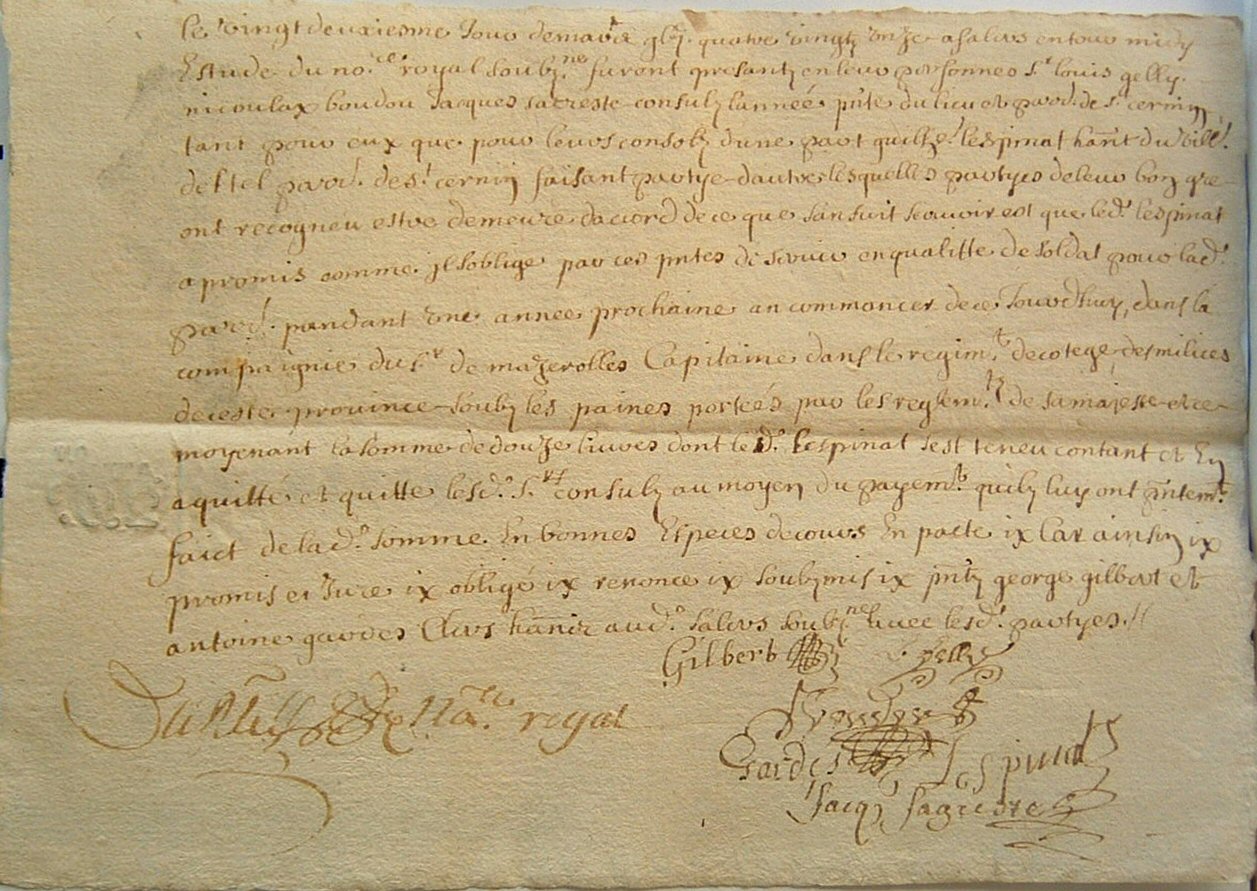 le vingt deuxiesme Jour de mars gbj. quatre vingtz onze a salers en tour midy
Estude du no.re royal soubz.nes furent presantz en leur personnes S.r louis gelly.
nicoulax boudou Jacques sacreste consulz lannéé pnte du lieu et parr. de S.t cernin
tant pour eux que pour leurs consolz dune part guilhe. lespinat hant du vill.
de stel parr. de S.t cernin faisant partye dautre lesquelles partyes de leur bon gre
ont recogneu estre demeure dacord de ce que sansuit scauoir est que led. lespinat
a promis comme jl soblige par ces pntes de seruir en qualitte de soldat pour lad.
parr. pandant vne année prochaine a commancer de ce Jourdhuy, dans la
compaignie du S.r de mazerolles Capitaine dans le regim.t de cotege des milices
de ceste prouince soubz les paines portéés par les reglem.ts de sa majeste et ce
moyenant la somme de douze liures dont led. lespinat sest teneu contant et En
a quitté et quitte lesd. S.rs consulz au moyen du payem.t quilz luy ont pntem.
faict de lad. somme En bonnes Especes de cours En pacte ix Car ainsin ix
promis et Jure ix obligé ix renonce ix soubzmis ix pntz george gilbert et
antoine gardes Clers hanz aud. salers soubz.nes auec lesd. partyes.//
Gilbert Gelly
no.re royal
Gardes Lespinat
Jacq. Sacreste